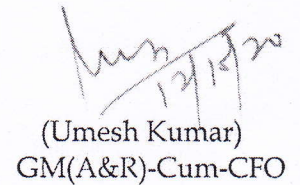 12/12/20
(Umesh Kumar)
GM(A&R)-Cum-CFO